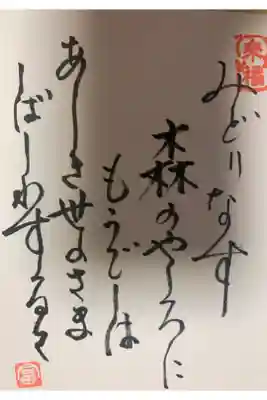 みどりなす
森のやしろに
もうでしは
あしき世のさま
ばしわするゝ